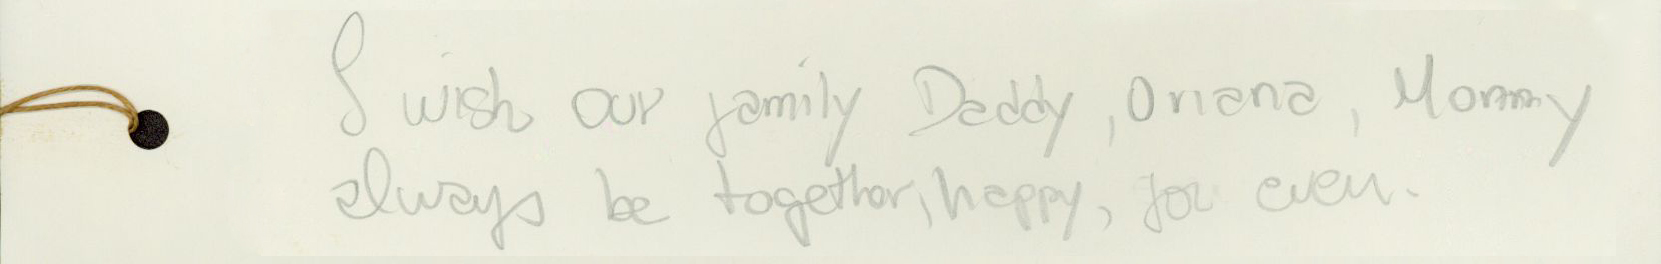 I wish our family Daddy, Oriana, Mommy
always be together, happy, for ever.